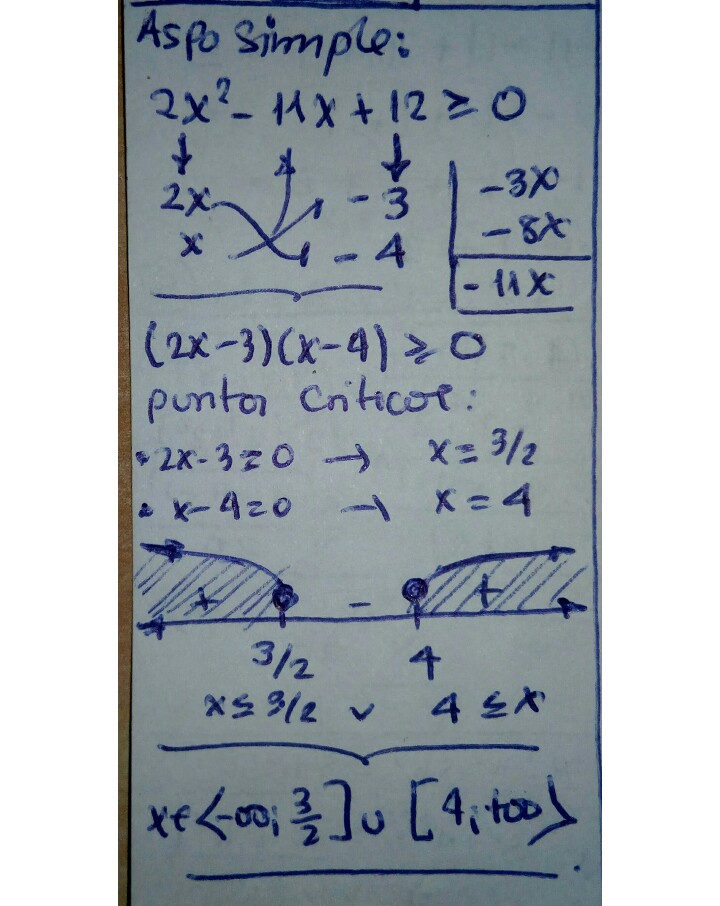 Aspa simple:
2x² - 11x + 12 ≥ 0
2x - 3 -3x
x - 4 -8x
-11x
(2x-3)(x-4) ≥ 0
puntos críticos:
• 2x-3=0 → x=3/2
• x-4=0 → x=4
+ - +
3/2 4
x≤3/2 ∨ 4≤x
x∈<-∞; 3/2] ∪ [4; +∞>